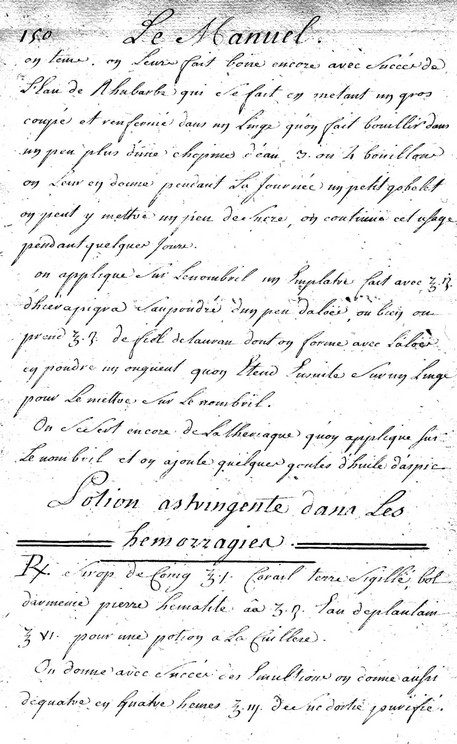 150 Le Manuel.
on teme. on Leur fait boire encore avec Succés de
L'Eau de Rhubarbe qui se fait en metant un gros
coupé et renfermé dans un Linge qu'on fait bouillir dans
un peu plus d'une chopine d'eau 3. ou 4 bouillons
on Leur en donne pendant La Journée un petit gobelet
on peut y mettre un peu de Sucre, on continue cet usage
pendant quelques Jours.
on applique Sur Lenombril un Emplatre fait avec ʒ.ij.
d'hierapigra Saupoudré d'un peu d'aloës, ou bien on
prend ʒ.ij. de fiel de taurau dont on forme avec L'aloës
en poudre un onguent quon Etend Ensuite Sur un Linge
pour Le mettre Sur Le nombril.
On Se Sert encore de La theriaque qu'on applique Sur
Le nombril et on ajoute quelques goutes d'huile d'aspic
Potion astringente dans Les
hemorragies.
℞ Sirop de Coing ℥.j. Corail terre Sigillé, bol
d'armenie pierre hematite āā ʒ.ij. Eau de plantain
℥ vi. pour une potion a La Cuillere.
On donne avec Succés des Emultions on donne aussi
de quatre en Quatre heures ℥.iij. de Suc d'ortie purifié.